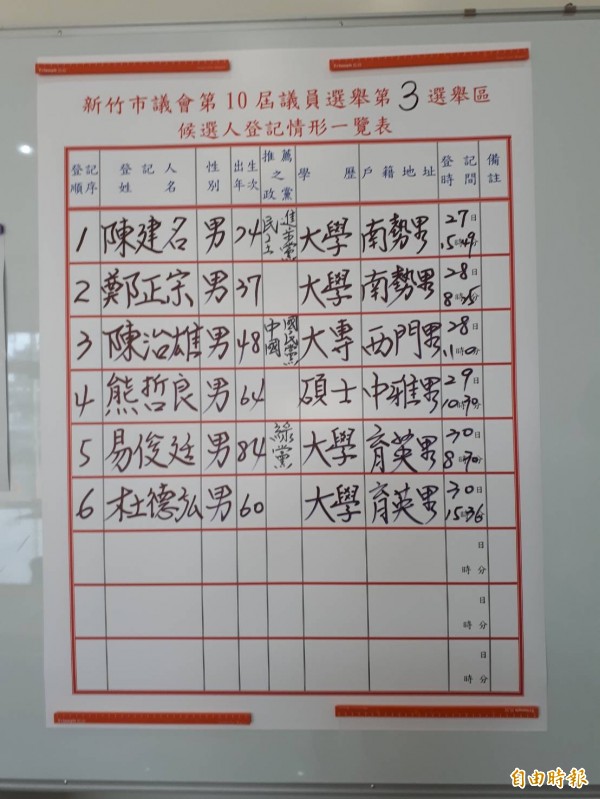 新竹市議會第10屆議員選舉第3選舉區
候選人登記情形一覽表
登記順序 登記人姓名 性別 出生年次 推薦之政黨 學歷 戶籍地址 登記時間 備註
1 陳建名 男 24 民主進步黨 大學 南勢里 27日15時49分
2 鄭正宗 男 37 大學 南勢里 28日8時25分
3 陳治雄 男 48 中國國民黨 大專 西門里 28日11時0分
4 熊哲良 男 64 碩士 中雅里 29日10時30分
5 易俊廷 男 84 綠黨 大學 育英里 30日8時30分
6 杜德弘 男 60 大學 育英里 30日15時36分
日時分
日時分
日時分
自由時報